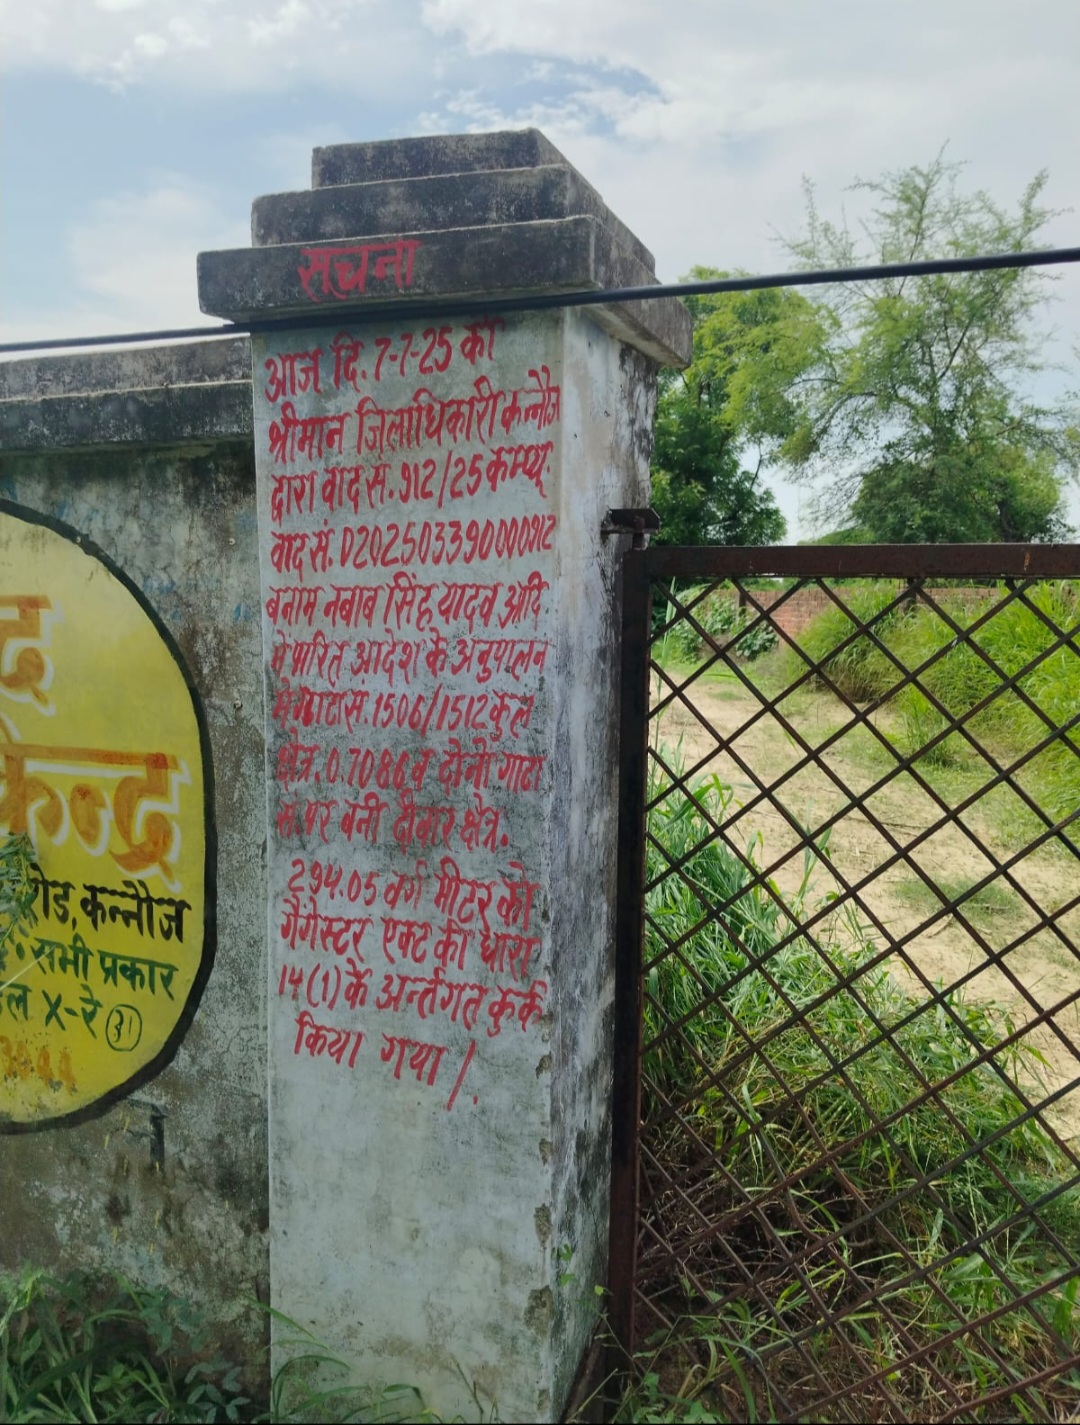 सूचना
आज दि. 7-7-25 को
श्रीमान जिलाधिकारी कन्नौज
द्वारा वाद स. 912/25 कम्प्यू.
वाद सं. D202503390000912
बनाम नबाब सिंह यादव आदि
मे पारित आदेश के अनुपालन
मे गाटा स. 1506/1512 कुल
क्षेत्र. 0.7086 व दोनो गाटा
स. पर बनी दीवार क्षेत्र.
294.05 वर्ग मीटर को
गैंगेस्टर एक्ट की धारा
14(1) के अर्न्तगत कुर्क
किया गया /.
केन्द्र
रोड, कन्नौज
सभी प्रकार
X-रे 31